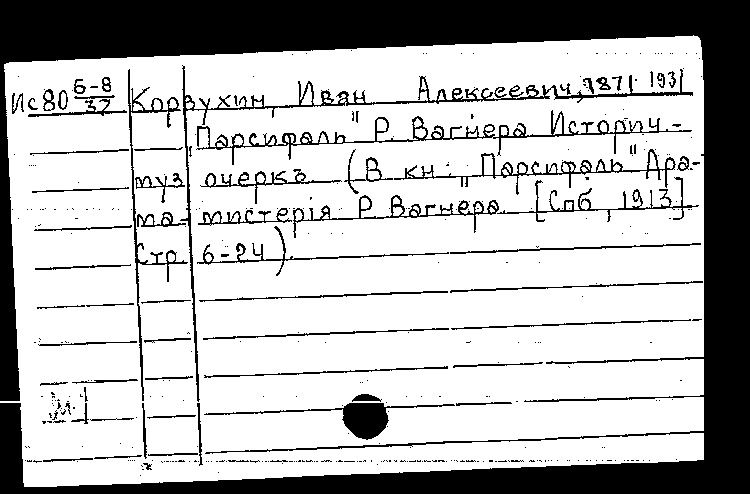 Ис80 Б-8/37 Корзухин, Иван Алексеевич, 1871-1931
„Парсифаль" Р. Вагнера. Историч.-
муз. очеркъ. (В кн.: „Парсифаль" Дра-
ма-мистерія Р. Вагнера. [Спб., 1913].
Стр. 6-24).